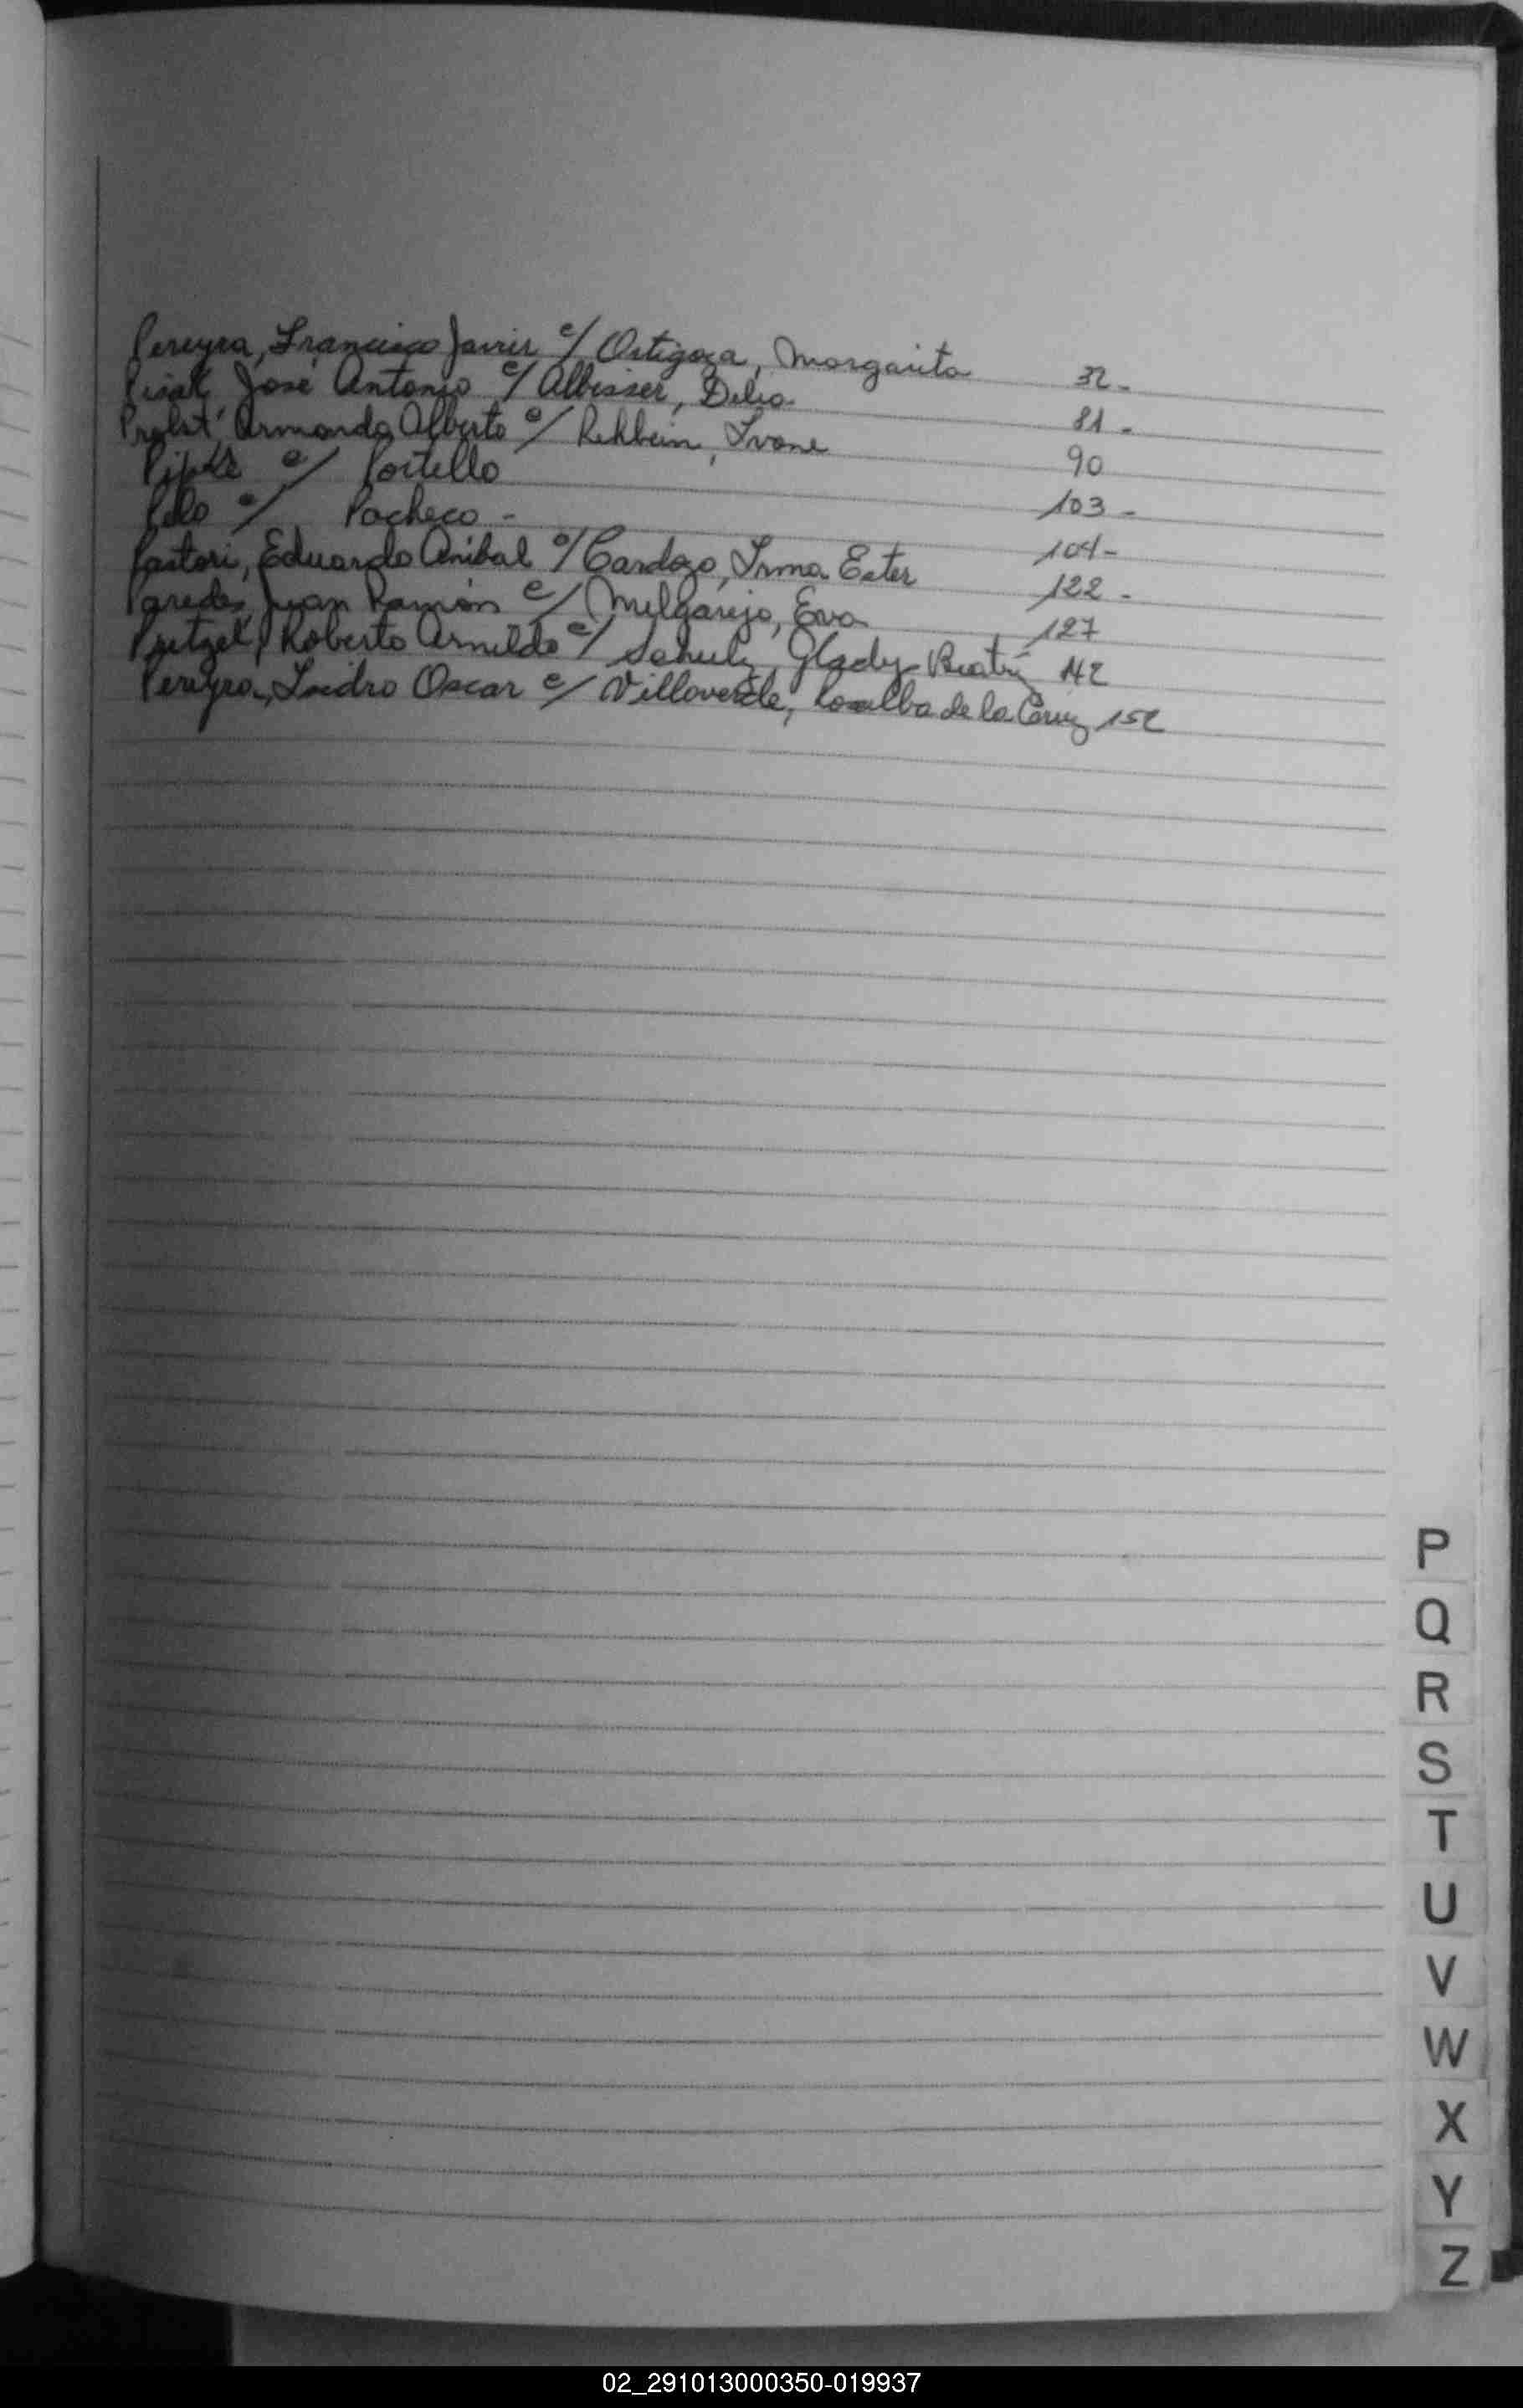 Pereyra, Francisco Javier c/ Ortigoza, Margarita 32-
José Antonio c/ Albisser, Delia 81-
Probst, Armando Alberto c/ Rehbein, Ivone 90
c/ Portello 103-
Polo c/ Pacheco - 104-
Pastori, Eduardo Anibal c/ Cardozo, Irma Ester 122-
Paredes, Juan Ramón c/ Melgarejo, Eva 127
Pretzel, Roberto Arnildo c/ Schulz, Gladys Beatriz 142
Pereyra, Isidro Oscar c/ Villaverde, Rosalba de la Cruz 152
P
Q
R
S
T
U
V
W
X
Y
Z
02_291013000350-019937